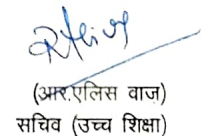 (आर.एलिस वाज़)
सचिव (उच्च शिक्षा)